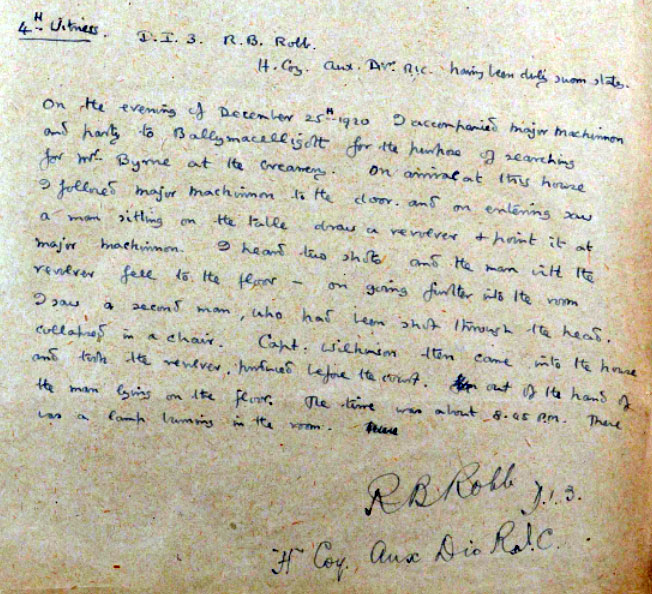 4th Witness. D.I.3. R.B. Robb.
H. Coy. Aux. Divn R.I.C. having been duly sworn states.
On the evening of December 25th 1920 I accompanied Major Mackinnon
and party to Ballymacelligott for the purpose of searching
for Mr. Byrne at the creamery. On arrival at this house
I followed Major Mackinnon to the door. and on entering saw
a man sitting on the table draw a revolver & point it at
Major Mackinnon. I heard two shots and the man with the
revolver fell to the floor – on going further into the room
I saw a second man, who had been shot through the head.
collapsed in a chair. Capt. Wilkinson then came into the house
and took the revolver, produced before the court. out of the hand of
the man lying on the floor. The time was about 8.45 P.M. There
was a lamp burning in the room.
R B Robb D.I.3.
H Coy. Aux Div R.I.C.